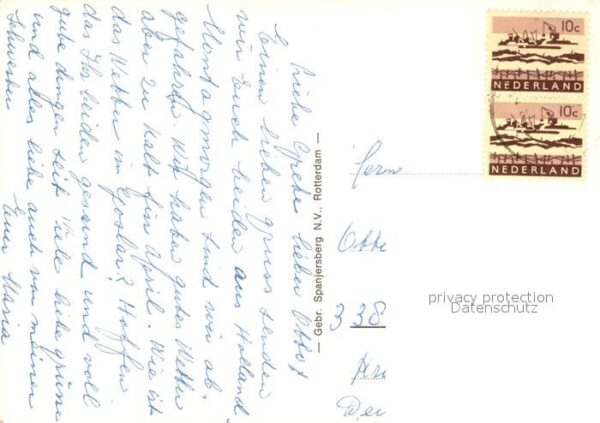 Liebe Grete lieber Otto!
Einen lieben Gruss senden
wir Euch beiden aus Holland
Montagmorgen sind wir ab
gefahren. Wir haben gutes Wetter
aber zu kalt für April. Wie ist
das Wetter im Goslar? Hoffen
das Ihr beiden gesund und voll
gute dingen seit. Viele liebe grüsse
und alles liebe auch von meiner
Schwester Eure Maria
— Gebr. Spanjersberg N.V., Rotterdam —
10c
NEDERLAND
10c
NEDERLAND
Herrn
Otto
338
privacy protection
Datenschutz